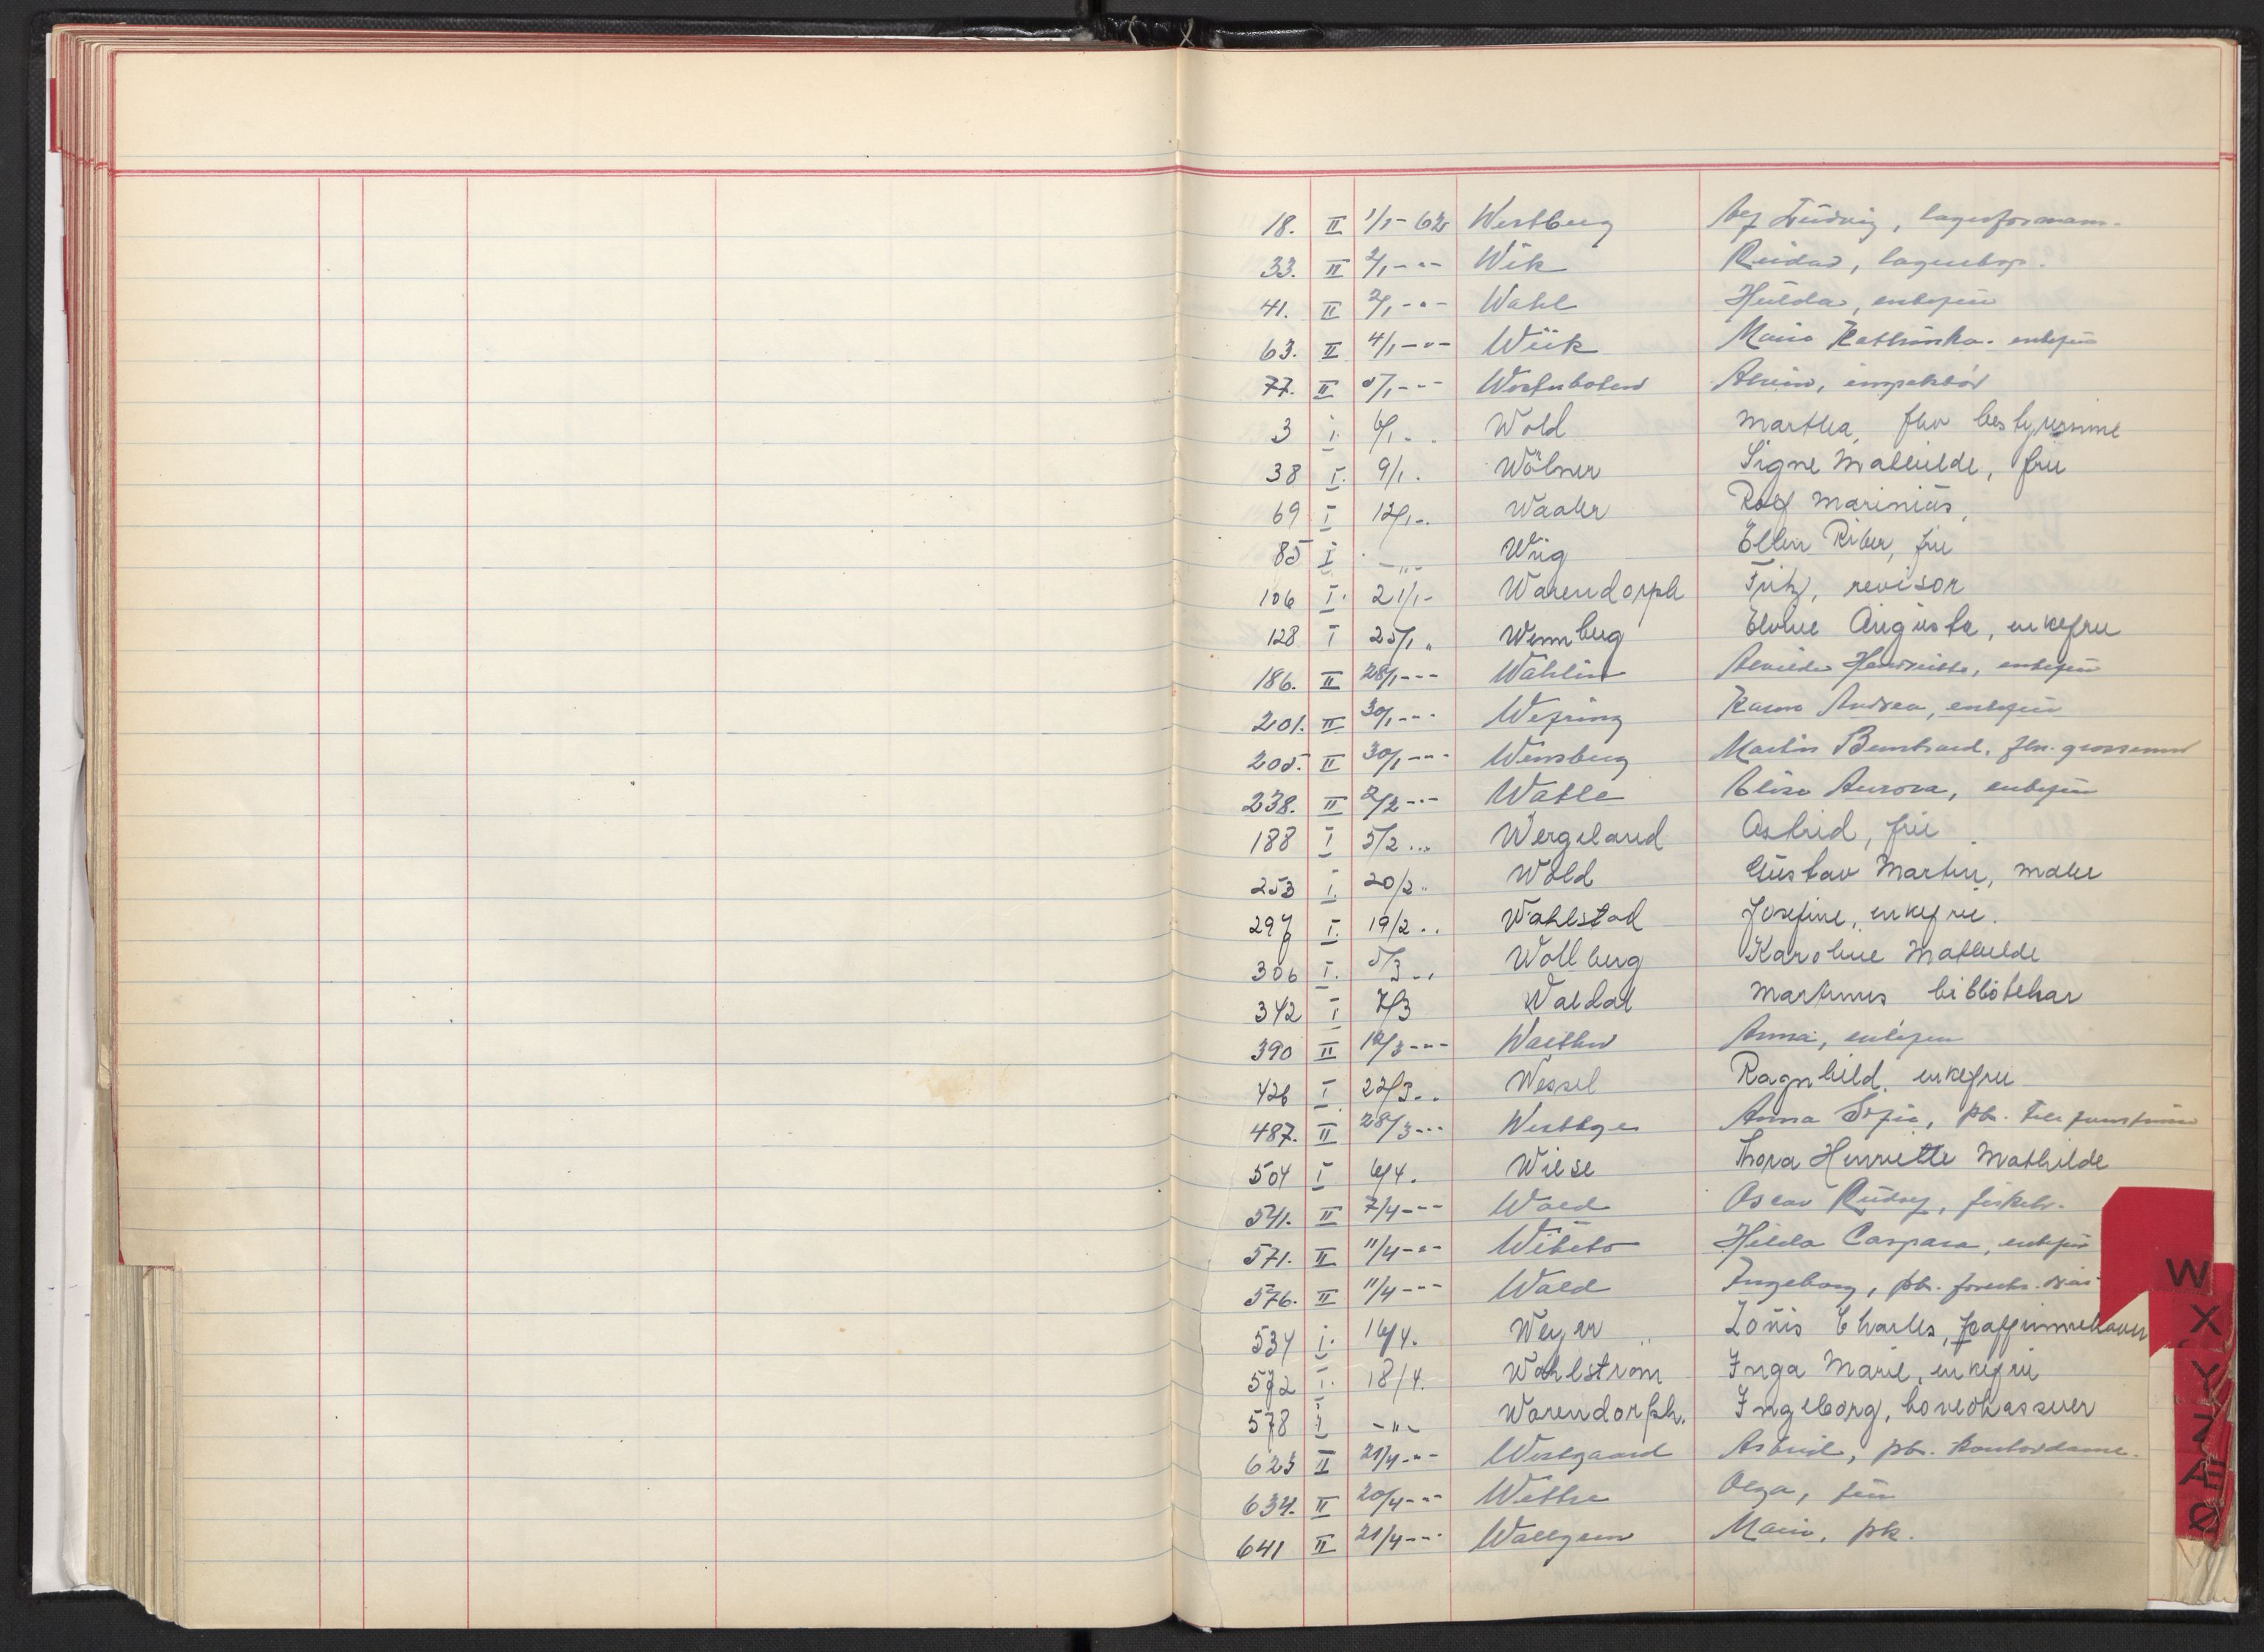 18. II 1/1-62 Westberg Alf Ludvig, lagerformann.
33. II 2/1-"- Wik Reidar, lagereksp.
41. II 2/1-"- Wahl Hulda, enkefru
63. II 4/1-"- Wiik Marie Kathinka. enkefru
77. II 5/1-"- inspektør
3 I. 6/1. . Wold Martha, fhv bestyrerinne
38 I. 9/1. Wölner Signe Mathilde, fru
69 I 12/1-. Waaler Rolf Marinius,
85 I -"- Wiig Ellen Riber, fru
106 I. 21/1- Warendorph Fritz, revisor
128 I 25/1 " Wennberg Auguste, enkefru
186. II 28/1-"- Wahlin Henriette, enkefru
201. II 30/1-"- Wefring Karen Andrea, enkefru
205. II 30/1-"- Wensberg Martin Bernhard, fhv. grosserer
238. II 2/2-"- Wahle Elise Aurora, enkefru
188 I 5/2 ... Wergeland Astrid, fru
253 I. 20/2 " Wold Gustav Martin, maler
297 I. 19/2 .. Wahlstad Josefine, enkefru.
306 I. 5/3 .. Wollberg Karoline Mathilde
342 I 7/3 Waldal Martinus bibliotekar
390 II 12/3-"- Walther Anna, enkefru
426 I 22/3.. Wessel Ragnhild, enkefru
487. II 28/3-"- Anna Sofie, pk.
504 I 6/4. Wiese Thora Henriette Mathilde
541. II 7/4-"- Wold Oscar Rudolf, fiskeh.
571. II 11/4-"- Hilda Caspara, enkefru
576. II 11/4-"- Wold Ingeborg, pk.
534 I. 16/4. Weyer Louis Charles,
572 I. 18/4. Wahlstrøm Inga Marie, enkefru
578 I -"- Warendorph. Ingeborg, hovedkasserer
623 II 21/4-"- Westgaard Astrid, pk. kontordame.
634. II 20/4-"- Wethe Olga, fru
641 II 21/4-"- Wallgren Marie, pk.
W
X
Y
Z
Æ
Ø